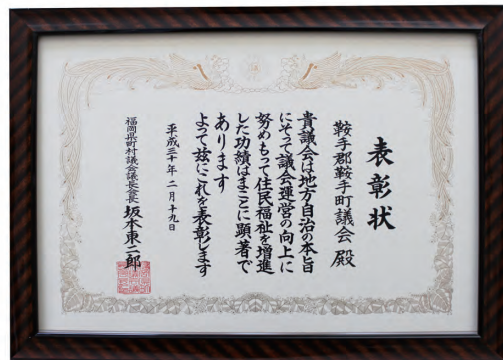 表彰状
鞍手郡鞍手町議会 殿
貴議会は地方自治の本旨
にそって議会運営の向上に
努めもって住民福祉を増進
した功績はまことに顕著で
あります
よって玆にこれを表彰します
平成三十年 二月十九日
福岡県町村議会議長会会長 坂本東二郎